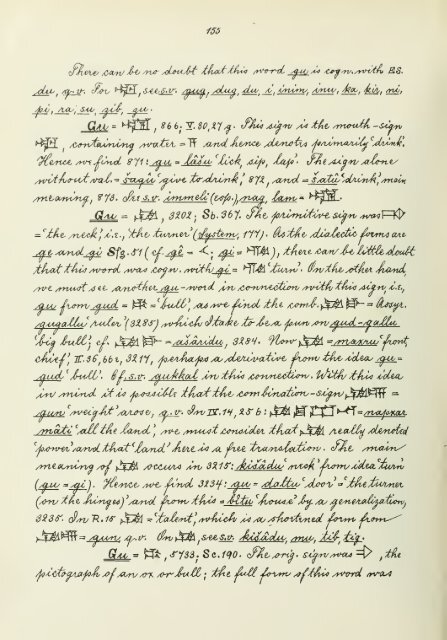 155
There can be no doubt that this word gu is cogn. with ES.
du, q.v. For see s.v. gug, dug, du, i, inim, inu, ka, kis, ni,
pi, ra, su, zib, zu.
Gu = , 866; V. 30, 27 g. This sign is the mouth-sign
, containing water = and hence denotes primarily 'drink'.
Hence we find 871: gu = lêšu 'lick, sip, lap'. The sign alone
without val. = šaqû 'give to drink,' 872, and = šatû 'drink,' main
meaning, 873. See s.v. immeli (esp.), nag, lam = .
Gu = , 3202; Sb. 367. The primitive sign was
= 'the neck', i.e., 'the turner' (System, 177). As the dialectic forms are
ge and gi 57 (cf. gê = ; gi = ), there can be little doubt
that this word was cogn. with gi = 'turn'. On the other hand,
we must see another gu-word in connection with this sign, i.e.,
gu from gud = = 'bull', as we find the comb. = Assyr.
gugallu 'ruler' (3285), which I take to be a pun on gud-gallu
'big bull'; cf. = ašâridu, 3284. Now = maxru 'front,
chief', II. 36, 66 e, 3217, perhaps a derivative from the idea gu =
gud 'bull'. Cf. s.v. gukkal in this connection. With this idea
in mind it is possible that the combination-sign =
gun 'weight' arose, q.v. In IV. 14, 25 b: = napxar
mâti 'all the land', we must consider that really denoted
'power' and that 'land' here is a free translation. The main
meaning of occurs in 3215: kišâdu 'neck' from idea 'turn'
(gu = gi). Hence we find 3234: gu = daltu 'door' = 'the turner
(on the hinges)' and from this = bîtu 'house' by a generalization,
3235. In R. 15 = 'talent', which is a shortened form from
= gun, q.v. On , see s.v. kišâdu, mu, tib, tig.
Gu = , 5733; Sc. 190. The orig. sign was , the
pictograph of an ox or bull; the full form of this word was